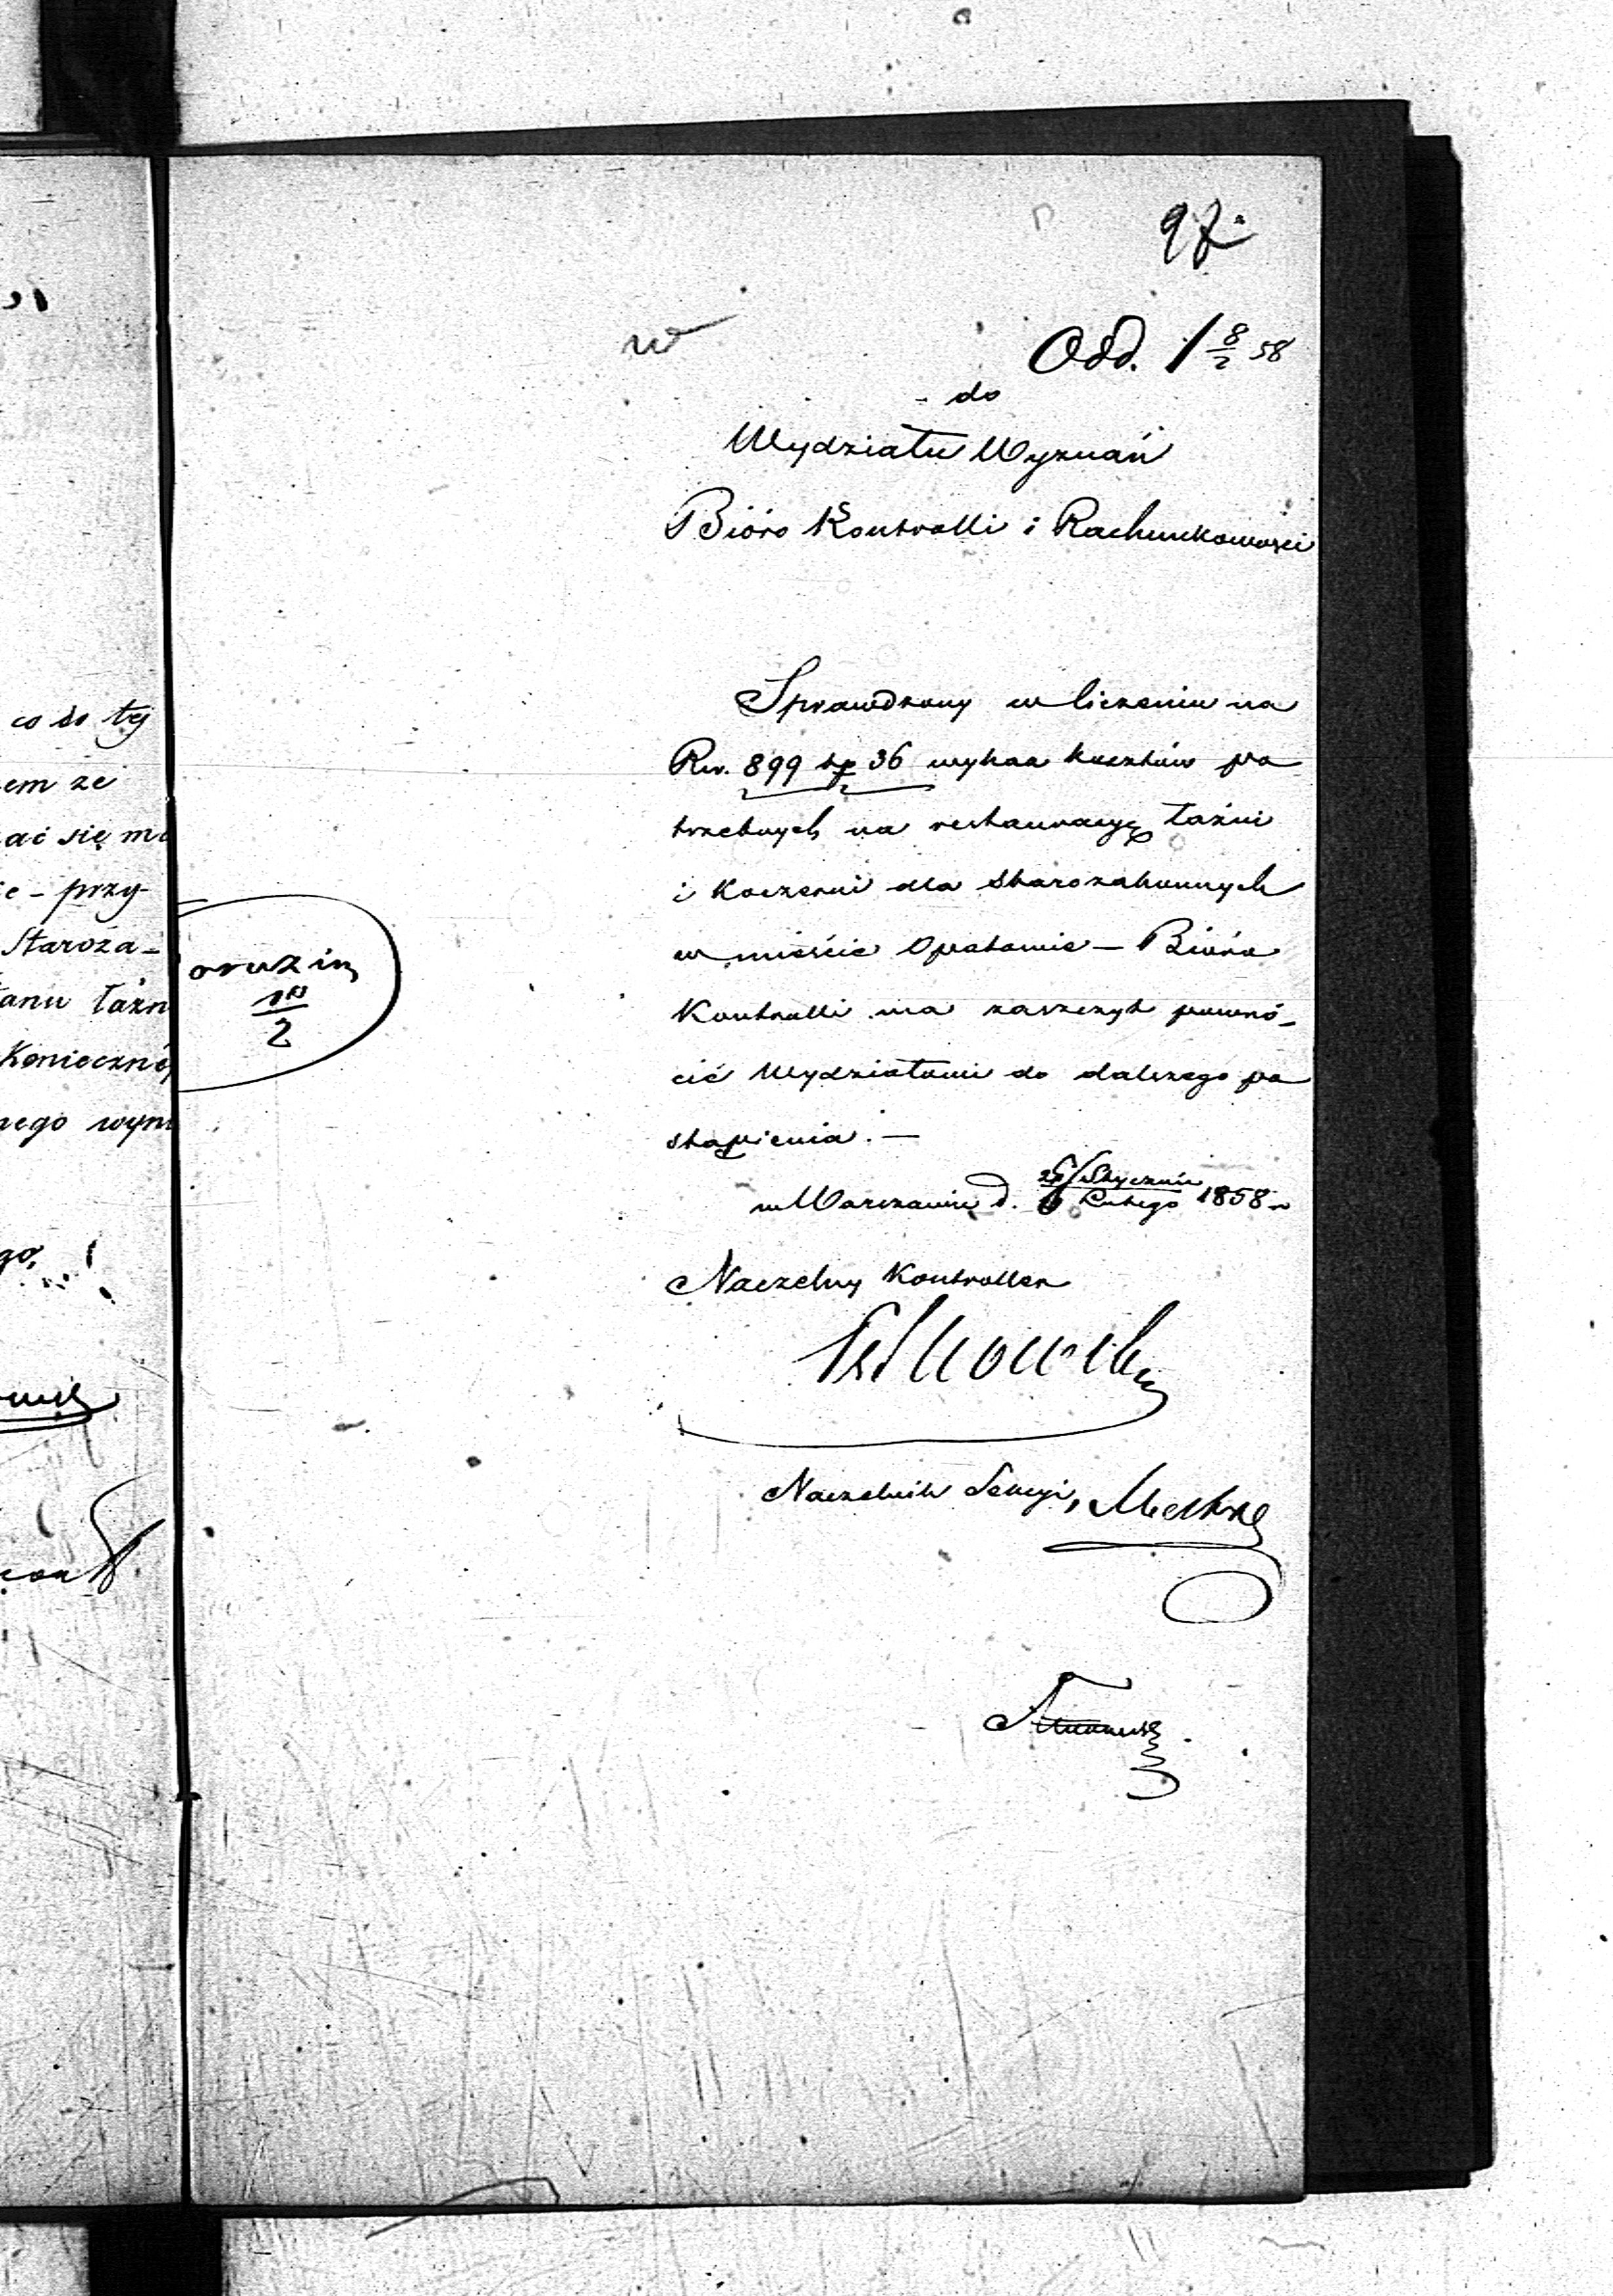 97
Odd. 1 8/2 58
do
Wydziału Wyznań
Bióro Kontrolli i Rachunkowości
Sprawdzony w liczeniu na
Rs. 899 kp 36 wykaz kosztów po
trzebnych na restauracyę łaźni
i Koszerni dla Starozakonnych
w mieście Opatowie – Bióro
Kontrolli ma zaszczyt powró-
cić Wydziałowi do dalszego po
stąpienia. –
w Warszawie d. Stycznia / Lutego 1858 r
Naczelny Kontroller
Naczelnik Sekcyi,
co do tej
em że
ać się mo
ie – przy-
Staroza-
anu łaźn
Konieczné
nego wym
go,